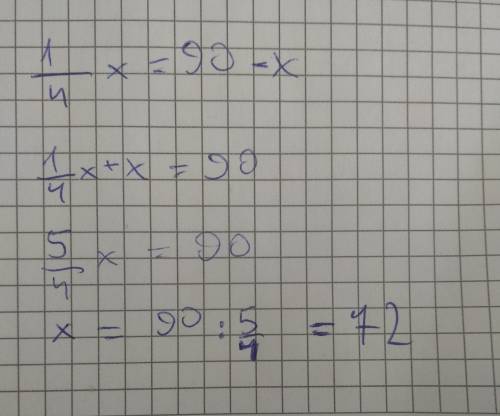 1/4 x = 90 - x
1/4 x + x = 90
5/4 x = 90
x = 90 : 5/4 = 72